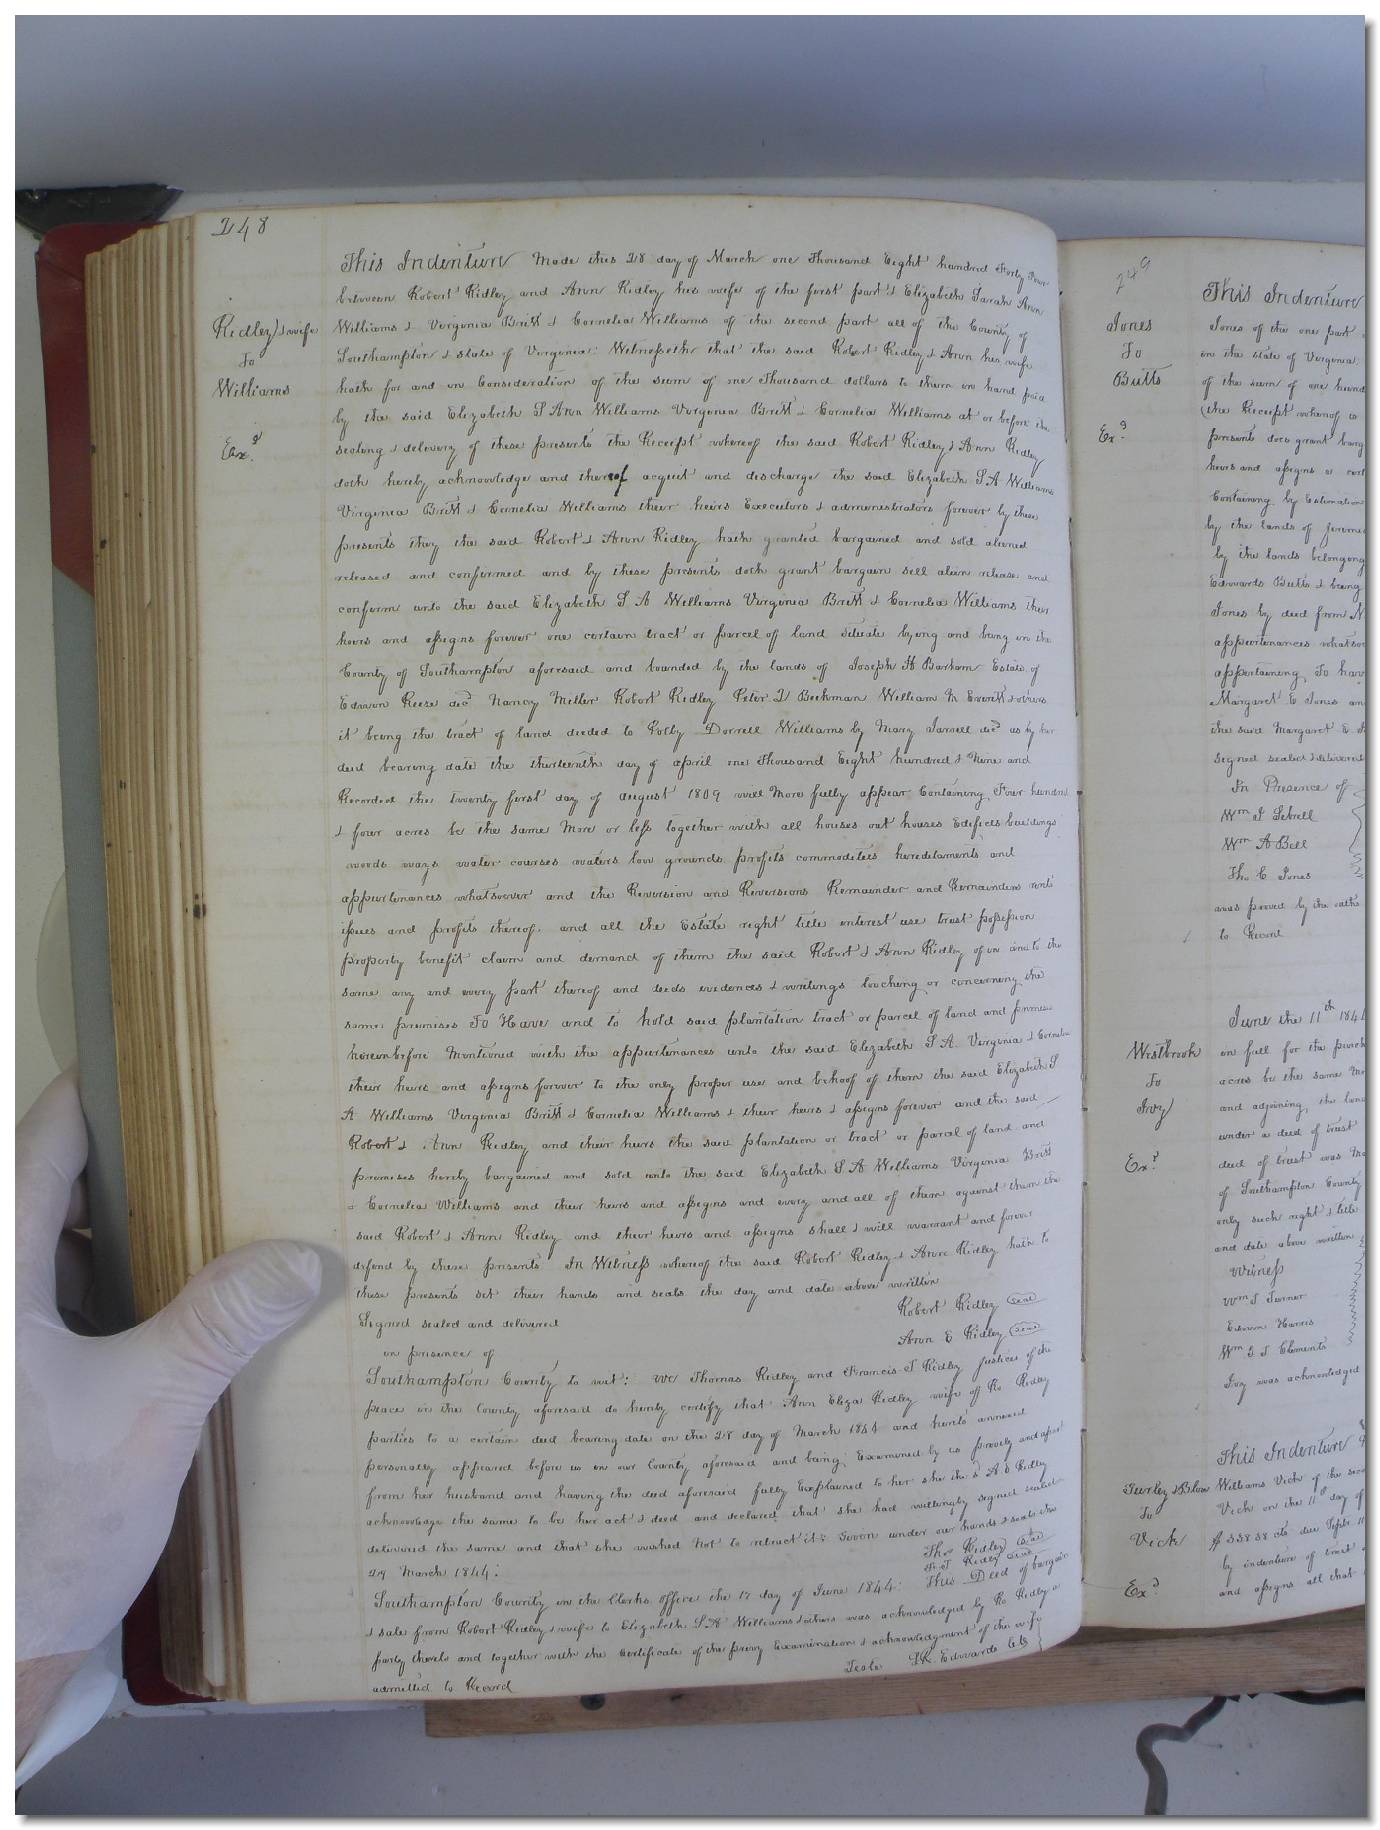 248
Ridley & wife
To
Williams
Exd
This Indenture Made this 28 day of March one Thousand Eight hundred Forty Four
between Robert Ridley and Ann Ridley his wife of the first part & Elizabeth Sarah Ann
Williams & Virginia Britt & Cornelia Williams of the second part all of the County of
Southampton & state of Virginia: Witnesseth that the said Robert Ridley & Ann his wife
hath for and in Consideration of the sum of one Thousand dollars to them in hand paid
by the said Elizabeth S Ann Williams Virginia Britt & Cornelia Williams at or before the
sealing & delivery of these presents the Receipt whereof the said Robert Ridley & Ann Ridley
doth hereby acknowledge and thereof acquit and discharge the said Elizabeth S A Williams
Virginia Britt & Cornelia Williams their heirs Executors & administrators forever by these
presents they the said Robert & Ann Ridley hath granted bargained and sold aliened
released and confirmed and by these presents doth grant bargain sell alien release and
confirm unto the said Elizabeth S A Williams Virginia Britt & Cornelia Williams their
heirs and assigns forever one certain tract or parcel of land situate lying and being in the
County of Southampton aforesaid and bounded by the lands of Joseph H Barham Estate of
Edwin Reese decd Nancy Miller Robert Ridley Peter D Beekman William M Everitt & others
it being the tract of land deeded to Polly Dorrell Williams by Mary Jarrell decd as by her
deed bearing date the thirteenth day of april one Thousand Eight hundred & Nine and
Recorded the twenty first day of august 1809 will More fully appear Containing Four hundred
& four acres be the same More or less together with all houses out houses Edifices buildings
woods ways water courses waters low grounds profits commodities hereditaments and
appurtenances whatsoever and the Reversion and Reversions Remainder and Remainders rents
issues and profits thereof. and all the Estate right title interest use trust possession
property benefit claim and demand of them the said Robert & Ann Ridley of in and to the
same any and every part thereof and deeds evidences & writings touching or concerning the
same premises To Have and to hold said plantation tract or parcel of land and premises
hereinbefore Mentioned with the appurtenances unto the said Elizabeth S A. Virginia & Cornelia
their heirs and assigns forever to the only proper use and behoof of them the said Elizabeth S
A Williams Virginia Britt & Cornelia Williams & their heirs & assigns forever and the said
Robert & Ann Ridley and their heirs the said plantation or tract or parcel of land and
premises hereby bargained and sold unto the said Elizabeth S A Williams Virginia Britt
& Cornelia Williams and their heirs and assigns and every and all of them against them the
said Robert & Ann Ridley and their heirs and assigns shall & will warrant and forever
defend by these presents In Witness whereof the said Robert Ridley & Ann Ridley hath to
these presents set their hands and seals the day and date above written
Signed sealed and delivered
in presence of
Robert Ridley seal
Ann E Ridley seal
Southampton County to wit: We Thomas Ridley and Francis T Ridley justices of the
peace in the County aforesaid do hereby certify that Ann Eliza Ridley wife off Ro Ridley
parties to a certain deed bearing date on the 28 day of March 1844 and hereto annexed
personally appeared before us in our County aforesaid and being Examined by us privily and apart
from her husband and having the deed aforesaid fully Explained to her she the sd A E Ridley
acknowledge the same to be her act & deed and declared that she had willingly signed sealed
delivered the same and that she wished Not to retract it: Given under our hands & seals this
29 March 1844:
Thos Ridley seal
F T Ridley seal
Southampton County in the Clerks office the 17 day of June 1844: This Deed of bargain
& sale from Robert Ridley & wife to Elizabeth S. A Williams & others was acknowledged by Ro Ridley a
party thereto and together with the Certificate of the privy Examination & acknowledgment of the wife
admitted to Record
Teste L R. Edwards Clk
249
Jones
To
Butts
Exd
This Indenture
Jones of the one part
in the state of Virginia
of the sum of one hund
(the Receipt whereof is
presents does grant barg
heirs and assigns a cert
Containing by Estimation
by the lands of Jeremi
by the lands belonging
Edwards Butts & being
Jones by deed from N
appurtenances whatsoe
appertaining To hav
Margaret E Jones an
the said Margaret E. J
signed sealed & delivered
In Presence of
Wm J Sebrell
Wm A Bell
Tho. C Jones
was proved by the oaths
to Record
Westbrook
To
Ivy
Exd
June the 11th 184
in full for the purch
acres be the same Mo
and adjoining the land
under a deed of trust
deed of trust was Ma
of Southampton County
only such right & title
and date above written
Witness
Wm J Turner
Edwin Harris
Wm G T Clements
Ivy was acknowledged
Turley & Blow
To
Vick
Exd
This Indenture
Williams Vick of the seco
Vick on the 11th day of
$338 38 cts due Septr 11
by indenture of trust
and assigns all that